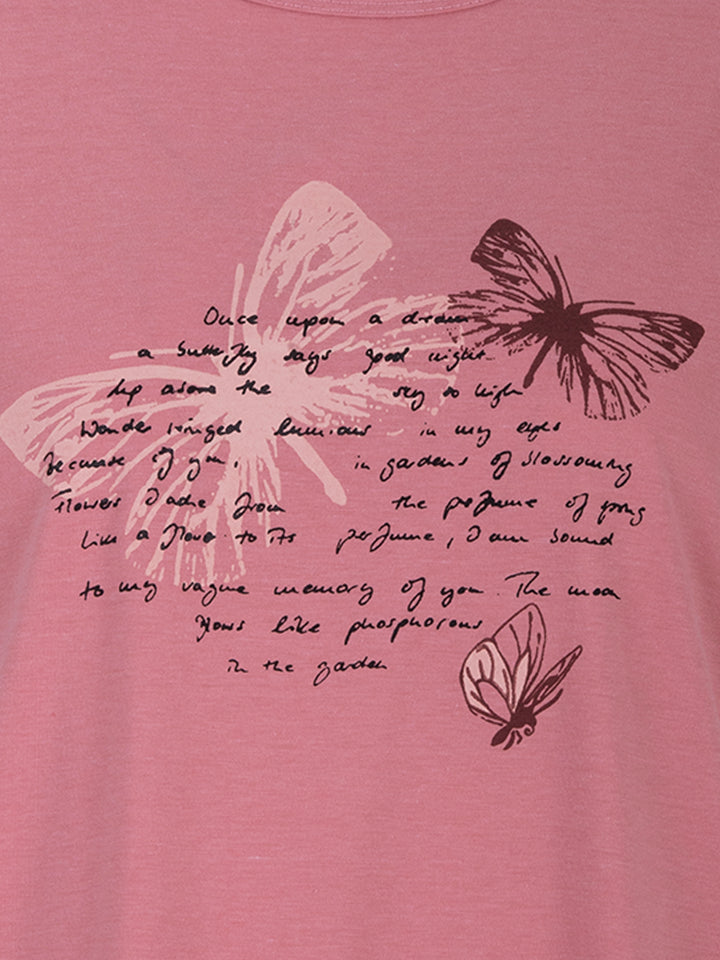 Once upon a dream
a butterfly says good night
Up above the sky so high
Wonder winged luminous in my eyes
Because of you, in gardens of blossoming
Flowers I ache from the perfume of
Like a flower to its perfume, I am bound
to my vague memory of you. The moon
glows like phosphorous
in the garden